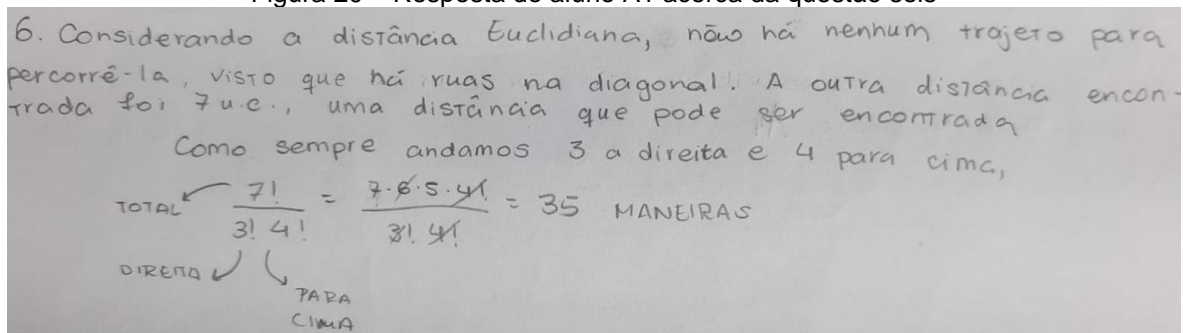 Figura 26 – Resposta do aluno A1 acerca da questão seis
6. Considerando a distância Euclidiana, não há nenhum trajeto para
percorrê-la, visto que há ruas na diagonal. A outra distância encon-
trada foi 7 u.c., uma distância que pode ser encontrada
Como sempre andamos 3 a direita e 4 para cima,
TOTAL 7! / 3! 4! = 7·6·5·4! / 3! 4! = 35 MANEIRAS
DIREITA
PARA
CIMA